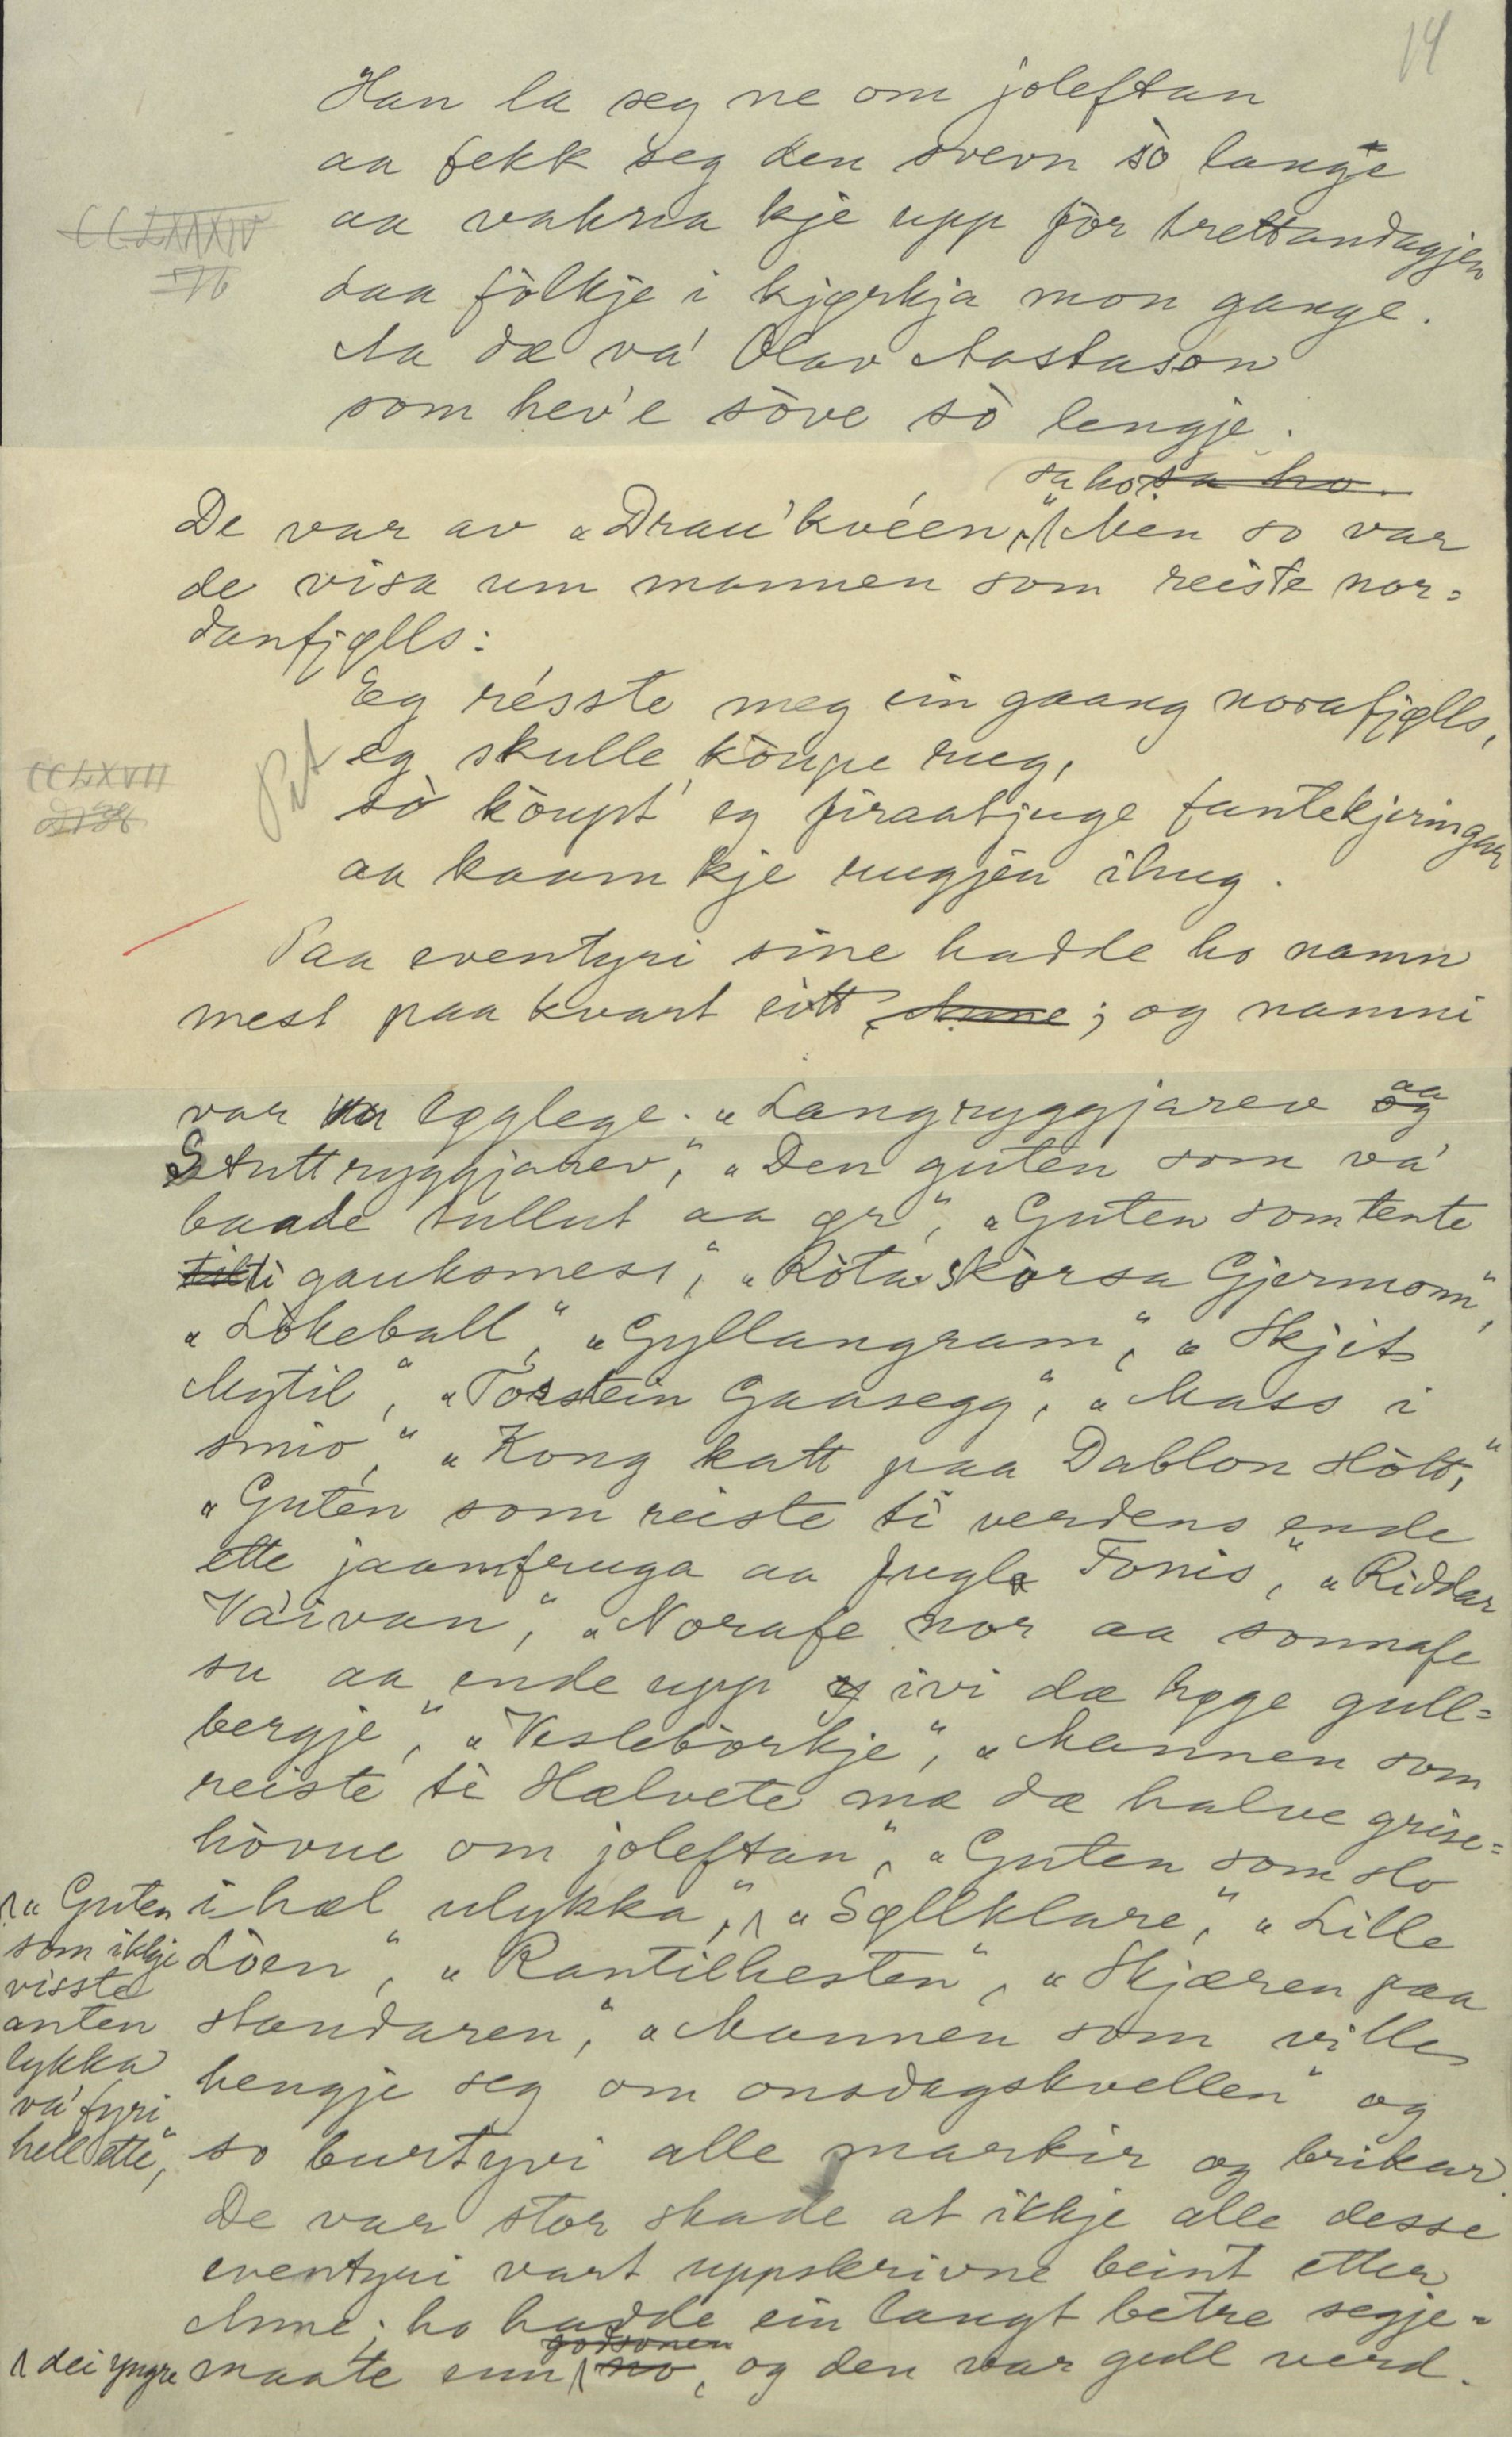 14
Han la seg ne om joleftan
aa fekk seg den svevn sò lange
aa vakna kje upp fòr trettandagjen
CCLXXXIV
76
daa fòlkje i kjørkja mon gange.
Aa dæ va' Olav Aastason
som hev'e sòve sò lengje.
sa ho. sa ho.
De var av „Drau'kvéen", Men so var
de visa um mannen som reiste nor=
danfjells:
Eg résste meg ein gaang norafjølls,
eg skulle kòupe rug,
CCLXVII
sò kòupt' eg firaatjuge fantekjeringar
aa kaam kje rugjen ihug.
Paa eventyri sine hadde ho namn
mest paa kvart eitt, Anne; og namni
var løglege. „Langryggjarev og aa
Stuttryggjarev", „Den guten som va'
baade tullut aa ør", „Guten som tente
till ti gauksmess", „Ròta Skòrsa Gjermom",
„Lòkeball", „Gyllangram", „Skjit
Mytil", „Torstein Gaasegg", „Mass i
smio", „Kong katt paa Dablon Slòtt",
„Guten som reiste ti verdens ende
ette jaamfruga aa fugla Fonis", „Riddar
Vaivan", „Norafe nor aa sonnafe
su aa ende upp ivi dæ høge gull=
bergje", „Veslebòrkje", „Mannen som
reiste ti Hælvete mæ dæ halve grise=
hòvue om joleftan", „Guten som slo
ihæl ulykka", „Søllklare", „Lille
„Guten
som ikkje
visste
anten
lykka
va' fyri
hell ette",
Lòen", „Rantilhesten", „Skjæren paa
standaren", „Mannen som ville
hengje seg om onsdagskvellen" og
so burtyvi alle markir og brikar.
De var stor skade at ikkje alle desse
eventyri vart uppskrivne beint etter
Anne; ho hadde ein langt betre segje=
godsonen
dei yngre
maate enn no, og den var gull verd.